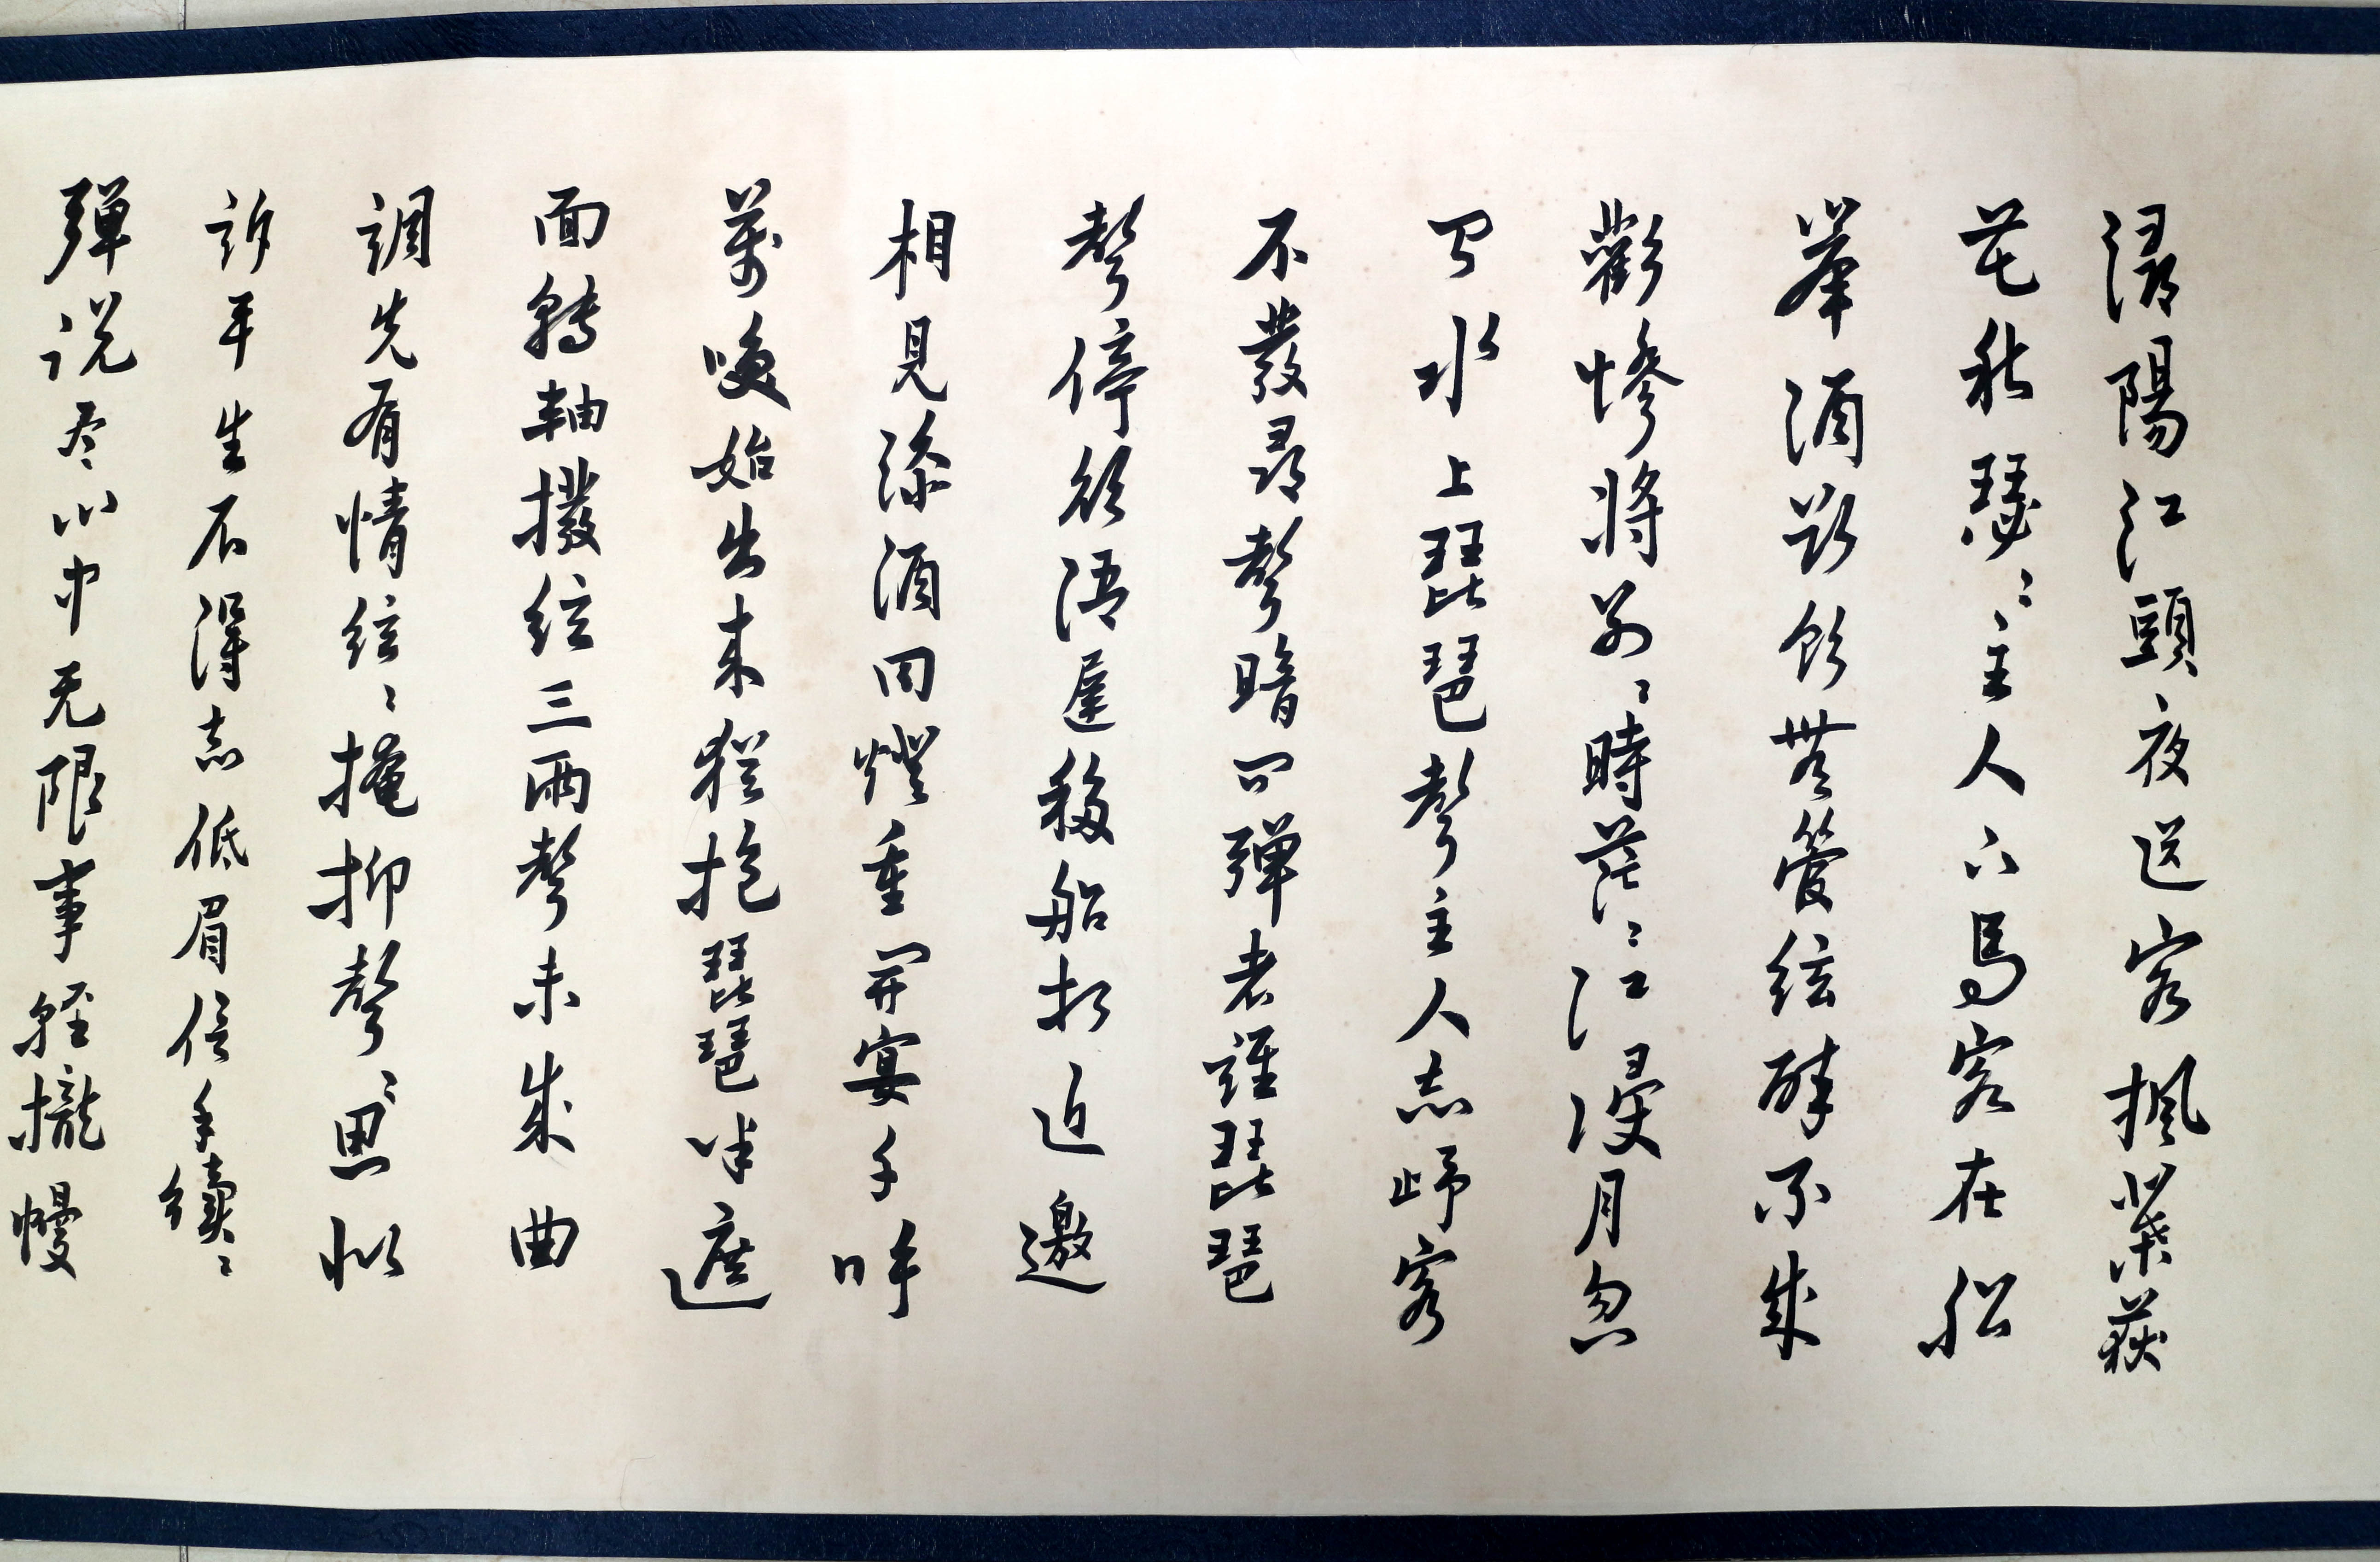 潯陽江頭夜送客楓葉荻
花秋瑟〻主人下馬客在船
舉酒欲飲無管絃醉不成
歡慘將別〻時茫〻江浸月忽
聞水上琵琶聲主人忘歸客
不發尋聲暗問彈者誰琵琶
聲停欲語遲移船相近邀
相見添酒回燈重開宴千呼
萬喚始出來猶抱琵琶半遮
面轉軸撥絃三兩聲未成曲
調先有情絃〻掩抑聲〻思似
訴平生不得志低眉信手續〻
彈说尽心中无限事輕攏慢